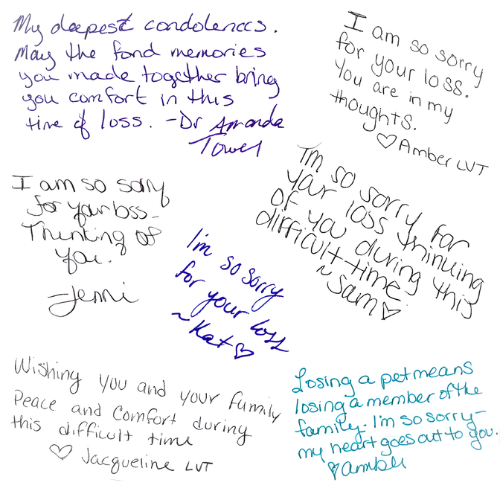 My deepest condolences.
May the fond memories
you made together bring
you comfort in this
time of loss. -Dr Amanda
Tower
I am so sorry
for your loss.
You are in my
thoughts.
♡ Amber LVT
I am so sorry
for your loss-
Thinking of
you.
-Jenni
I'm so sorry
for your loss
~Kat♡
I'm so sorry for
your loss thinking
of you during this
difficult time.
~Sam♡
Wishing you and your family
Peace and comfort during
this difficult time
♡ Jacqueline LVT
Losing a pet means
losing a member of the
family. I'm so sorry-
my heart goes out to you.
♡